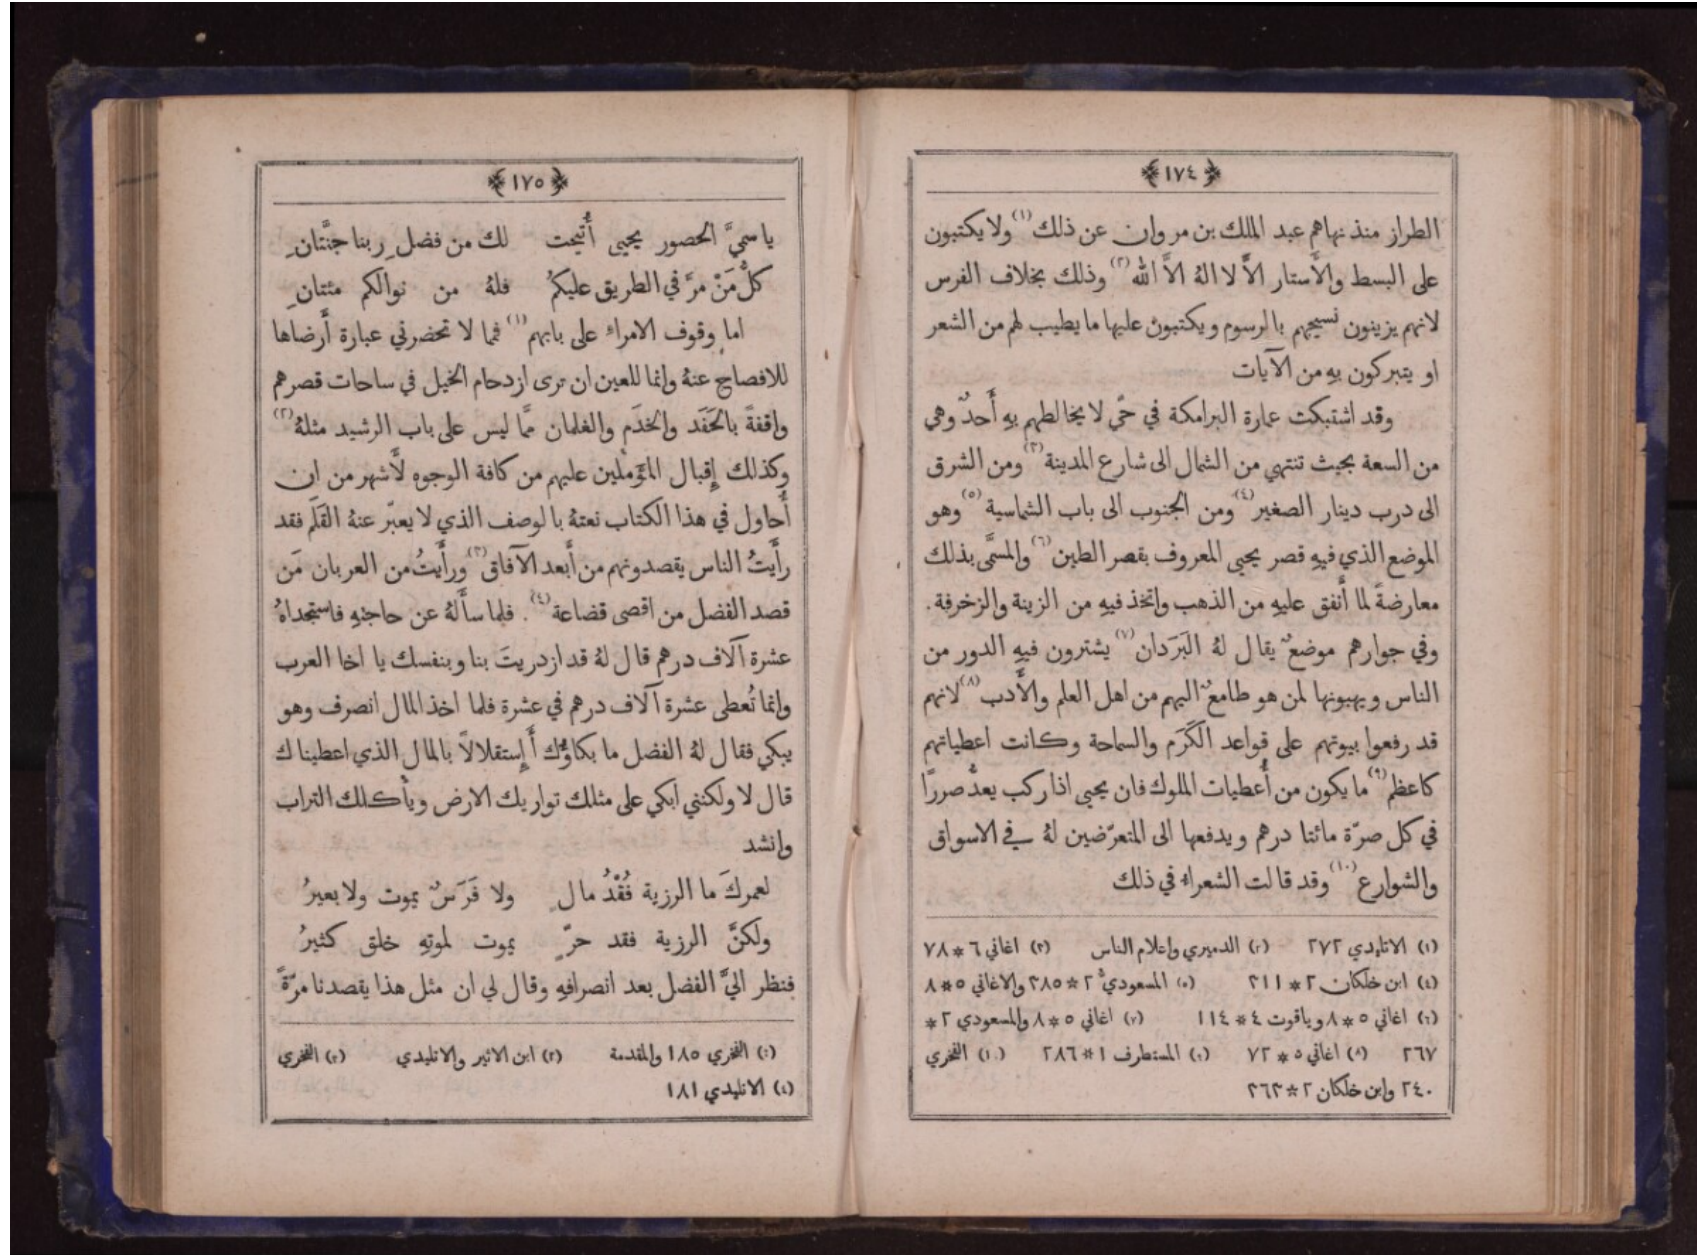 ﴿١٧٤﴾
الطراز منذ نهاهم عبد الملك بن مروان عن ذلك (١) ولا يكتبون
على البسط والأستار الاَّ لا الهُ الاَّ الله (٢) وذلك بخلاف الفرس
لانهم يزينون نسيجهم بالرسوم ويكتبون عليها ما يطيب لهم من الشعر
او يتبركون بهِ من الآيات
وقد اشتبكت عمارة البرامكة في حيّ لا يخالطهم بهِ أَحدٌ وهي
من السعة بحيث تنتهي من الشمال الى شارع المدينة (٣) ومن الشرق
الى درب دينار الصغير (٤) ومن الجنوب الى باب الشماسية (٥) وهو
الموضع الذي فيهِ قصر يحيى المعروف بقصر الطين (٦) والمسمَّى بذلك
معارضةً لما أَنفق عليهِ من الذهب واتخذ فيهِ من الزينة والزخرفة.
وفي جوارهم موضعٌ يقال لهُ البَرَدان (٧) يشترون فيهِ الدور من
الناس ويهبونها لمن هو طامعٌ اليهم من اهل العلم والأَدب (٨) لانهم
قد رفعوا بيوتهم على قواعد الكَرَم والسماحة وكانت اعطياتهم
كاعظم (٩) ما يكون من أُعطيات الملوك فان يحيى اذا ركب يعدُّ صررًا
في كل صرّة مائتا درهم ويدفعها الى المتعرّضين لهُ في الاسواق
والشوارع (١٠) وقد قالت الشعراءُ في ذلك
(١) الاتليدي ٢٧٢ (٢) الدميري واعلام الناس (٣) اغاني ٦*٧٨
(٤) ابن خلكان ٢*٢١١ (٥) المسعودي ٢*٢٨٥ والاغاني ٥*٨
(٦) اغاني ٥*٨ وياقوت ٤*١١٤ (٧) اغاني ٥*٨ والمسعودي ٢*
٢٦٧ (٨) اغاني ٥*٧٢ (٩) المستطرف ١*٢٨٦ (١٠) الفخري
٢٤٠ وابن خلكان ٢*٢٦٢
﴿١٧٥﴾
يا سميَّ الحصور يحيى أُتيحت لك من فضلِ ربنا جنَّتانِ
كلُّ مَنْ مرَّ في الطريق عليكمُ فلهُ من نوالكم مئتانِ
اما وقوف الامراء على بابهم (١) فما لا تحضرني عبارة أَرضاها
للافصاح عنهُ وانما للعين ان ترى ازدحام الخيل في ساحات قصرهم
واقفةً بالحَفَد والخدَم والغلمان ممَّا ليس على باب الرشيد مثلهُ (٢)
وكذلك إِقبال المؤملين عليهم من كافة الوجوه لأَشهر من ان
أُحاول في هذا الكتاب نعتهُ بالوصف الذي لا يعبّر عنهُ القَلَم فقد
رأَيتُ الناس يقصدونهم من أَبعد الآفاق (٣) ورأَيتُ من العربان مَن
قصد الفضل من اقصى قضاعة (٤). فلما سأَلهُ عن حاجتهِ فاستجداهُ
عشرة آلاف درهم قال لهُ قد ازدريتَ بنا وبنفسك يا اخا العرب
وانما تُعطى عشرة آلاف درهم في عشرة فلما اخذ المال انصرف وهو
يبكي فقال لهُ الفضل ما بكاؤُك أَإِستقلالاً بالمال الذي اعطيناك
قال لا ولكنني ابكي على مثلك تواريك الارض ويأْكلك التراب
وانشد
لعمركَ ما الرزية فُقْدُ مالٍ ولا فَرَسٌ يموت ولا بعيرُ
ولكنَّ الرزية فقد حرٍّ يموت لموتهِ خلق كثيرُ
فنظر اليَّ الفضل بعد انصرافهِ وقال لي ان مثل هذا يقصدنا مرّةً
(١) الفخري ١٨٥ والمقدمة (٢) ابن الاثير والاتليدي (٣) الفخري
(٤) الاتليدي ١٨١